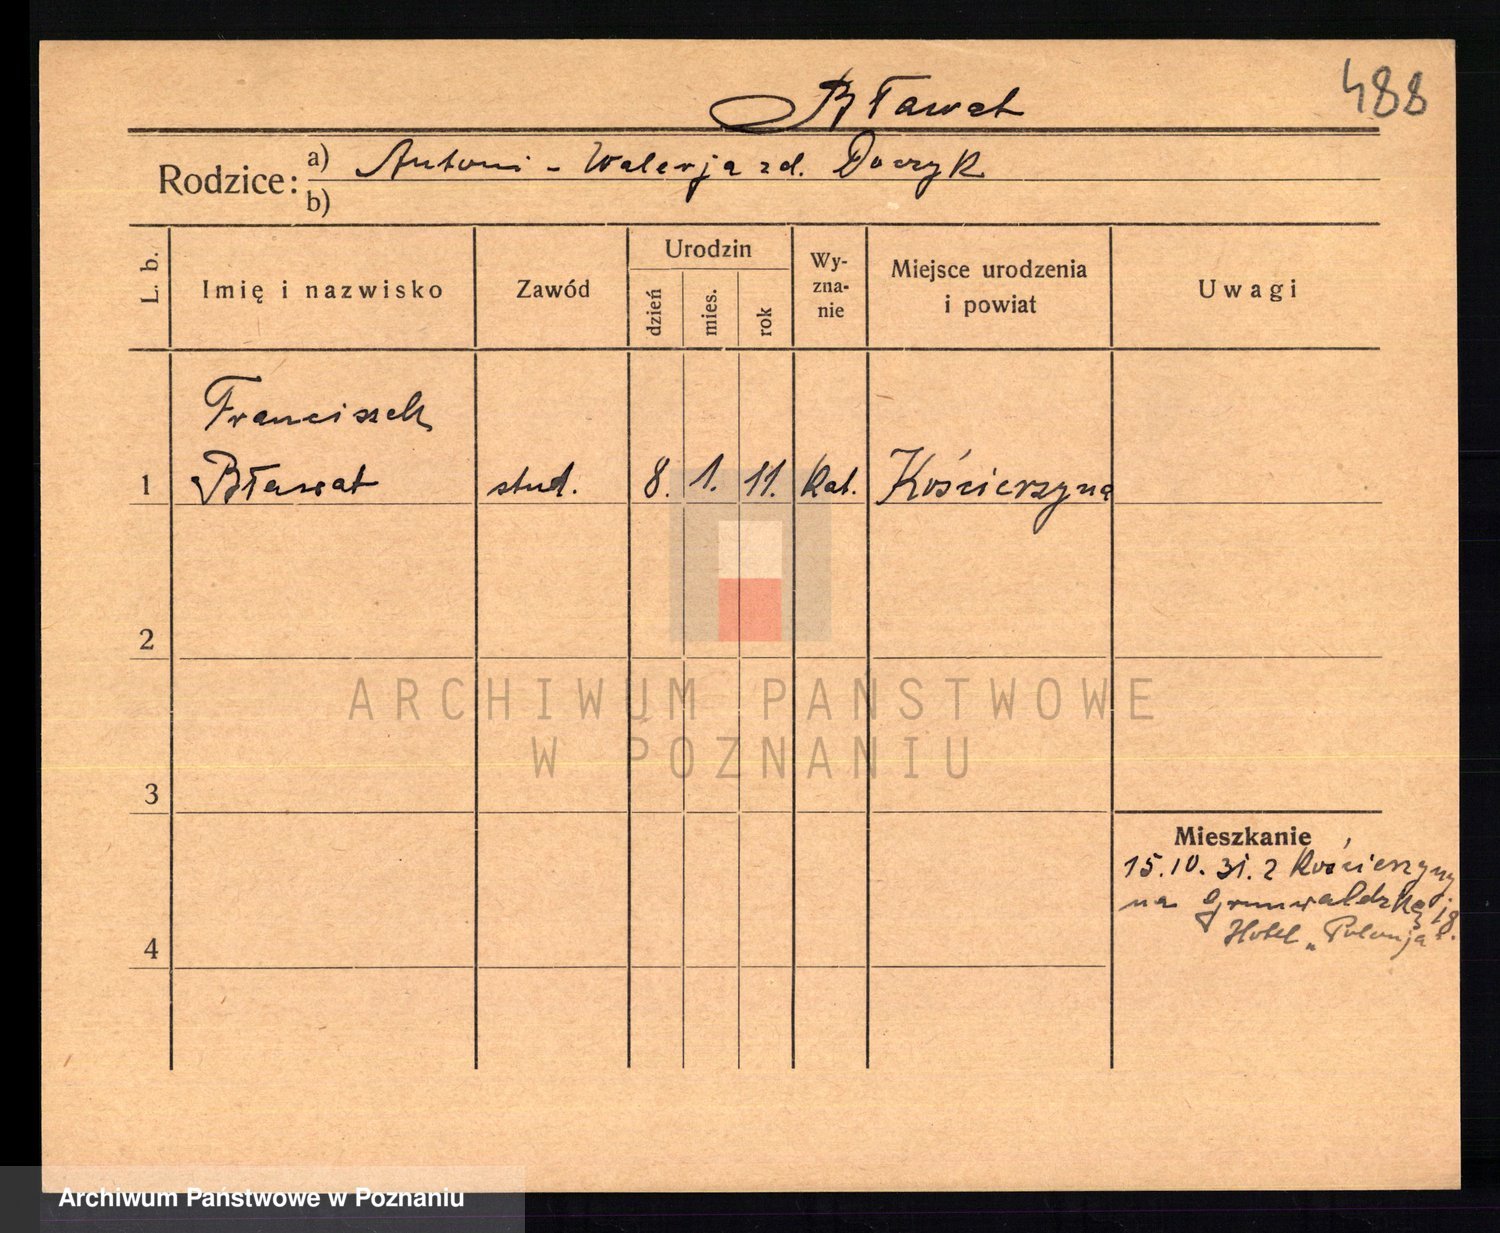 488
Bławat
Rodzice: a) Antoni - Walerja zd. Doczyk
b)
L. b.
Imię i nazwisko
Zawód
Urodzin
dzień
mies.
rok
Wy-
zna-
nie
Miejsce urodzenia
i powiat
Uwagi
Franciszek
1 Bławat stud. 8. 1. 11. kat. Kościerzyna
2
3
4
Mieszkanie
15.10.31. z Kościerzyny
na Grunwaldzką 18.
Hotel „Polonja".
ARCHIWUM PAŃSTWOWE
W POZNANIU
Archiwum Państwowe w Poznaniu